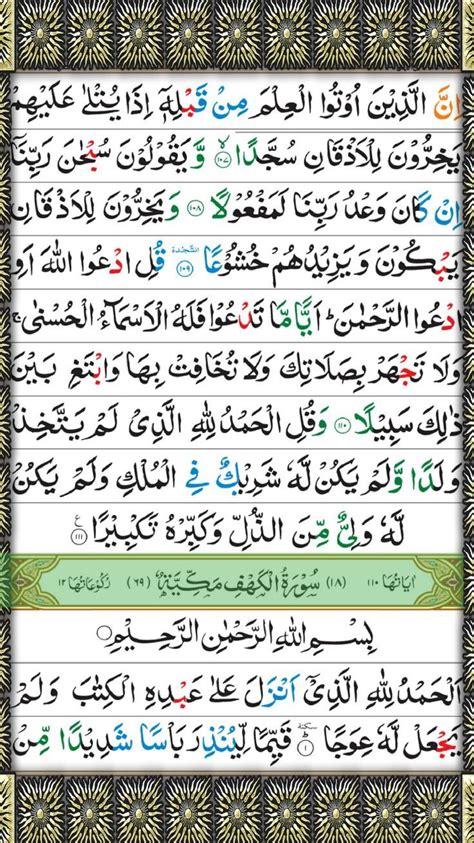 اِنَّ الَّذِيْنَ اُوْتُوا الْعِلْمَ مِنْ قَبْلِهٖۤ اِذَا يُتْلٰى عَلَيْهِمْ
يَخِرُّوْنَ لِلْاَذْقَانِ سُجَّدًا ۙ‏ ۱۰۷ وَّيَقُوْلُوْنَ سُبْحٰنَ رَبِّنَاۤ
اِنْ كَانَ وَعْدُ رَبِّنَا لَمَفْعُوْلًا ۱۰۸ وَيَخِرُّوْنَ لِلْاَذْقَانِ
يَبْكُوْنَ وَيَزِيْدُهُمْ خُشُوْعًا السَّجْدَة ۱۰۹ قُلِ ادْعُوا اللّٰهَ اَوِ
ادْعُوا الرَّحْمٰنَ ؕ اَيًّا مَّا تَدْعُوْا فَلَهُ الْاَسْمَآءُ الْحُسْنٰى ۚ
وَلَا تَجْهَرْ بِصَلَاتِكَ وَلَا تُخَافِتْ بِهَا وَابْتَغِ بَيْنَ
ذٰلِكَ سَبِيْلًا ۱۱۰ وَقُلِ الْحَمْدُ لِلّٰهِ الَّذِىْ لَمْ يَتَّخِذْ
وَلَدًا وَّلَمْ يَكُنْ لَّهٗ شَرِيْكٌ فِى الْمُلْكِ وَلَمْ يَكُنْ
لَّهٗ وَلِىٌّ مِّنَ الذُّلِّ وَكَبِّرْهُ تَكْبِيْرًا ۱۱۱ ع
اٰيَاتُهَا ۱۱۰ (۱۸) سُوْرَةُ الْكَهْفِ مَكِّيَّةٌ (۶۹) رُكُوْعَاتُهَا ۱۲
بِسْمِ اللّٰهِ الرَّحْمٰنِ الرَّحِيْمِ
اَلْحَمْدُ لِلّٰهِ الَّذِىْۤ اَنْزَلَ عَلٰى عَبْدِهِ الْكِتٰبَ وَلَمْ
يَجْعَلْ لَّهٗ عِوَجًا سكتة ۱ قَيِّمًا لِّيُنْذِرَ بَاْسًا شَدِيْدًا مِّنْ